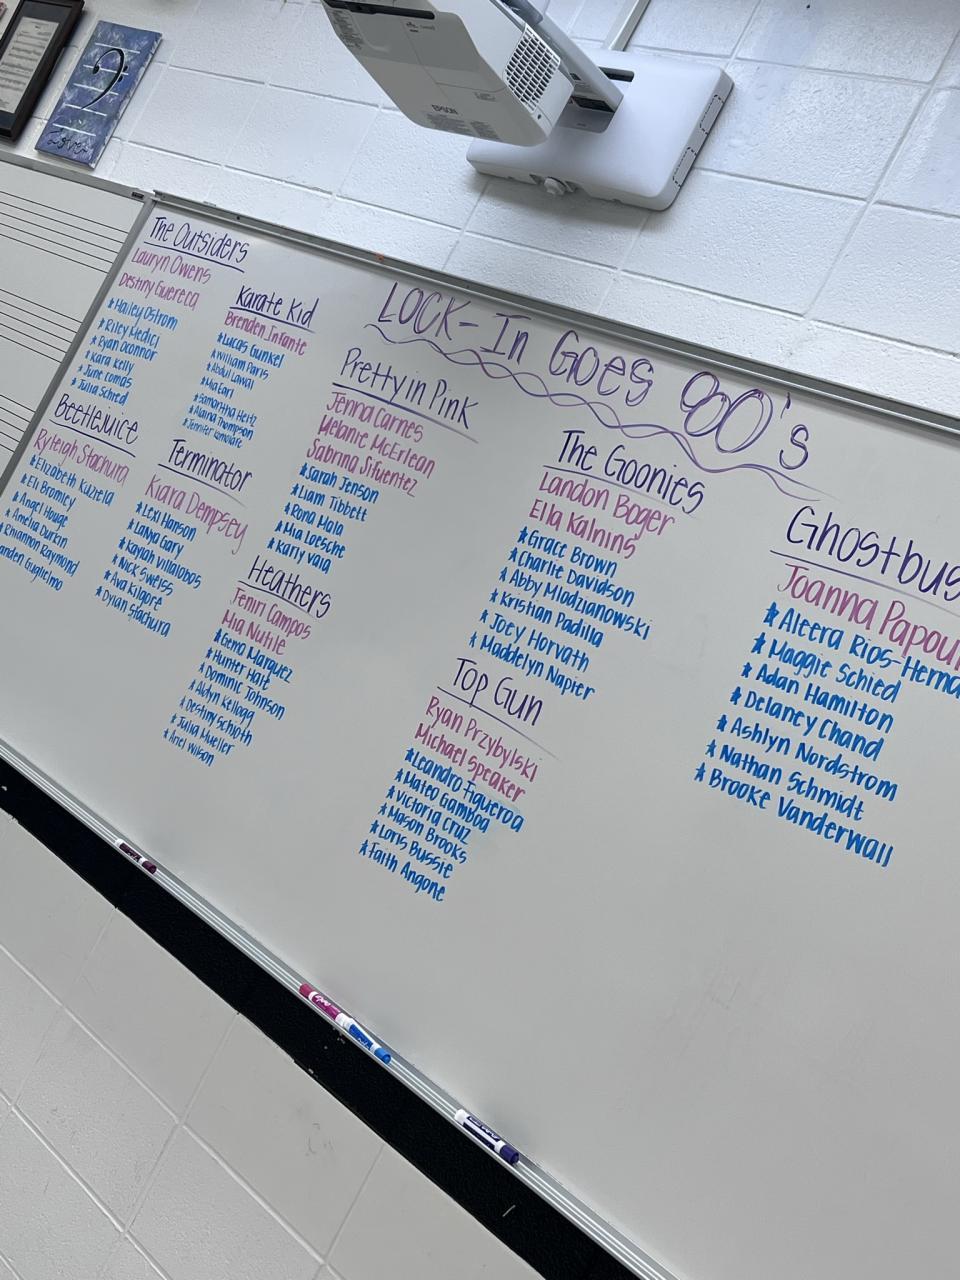 EPSON
LOCK-In GOES 80's
The Outsiders
Lauryn Owens
Destiny Guereca
★ Hailey Ostrom
★ Riley Medici
★ Ryan Oconnor
★ Kara Kelly
★ June Comas
★ Julia Schied
Beetlejuice
Ryleigh Stachura
★ Elizabeth Kuziela
★ Eli Bromley
★ Angel Houge
★ Amelia Durkin
Rhiannon Raymond
Guglielmo
Karate Kid
Brenden Infante
★ Lucas Gunkel
★ William Paris
★ Abdul Lawal
★ Mia Earl
★ Samantha Heitz
★ Alaina Thompson
★ Jennifer
Terminator
Kiara Dempsey
★ Lexi Hanson
★ LaNya Gary
★ Kayiah Villalobos
★ Nick Sweiss
★ Ava Kilgore
★ Dylan Stachura
Heathers
Jeniri Campos
Mia Nutile
★ Gema Marquez
★ Hunter Haft
★ Dominic Johnson
★ Aidyn Kellogg
★ Destiny Schjoth
★ Julia Mueller
★ Ariel Wilson
Pretty in Pink
Jenna Carnes
Melanie McErlean
Sabrina Sifuentez
★ Sarah Jenson
★ Liam Tibbett
★ Rona Mala
★ Mia Loesche
★ Karly Vaia
The Goonies
Landon Boger
Ella Kalnins
★ Grace Brown
★ Charlie Davidson
★ Abby Mlodzianowski
★ Kristian Padilla
★ Joey Horvath
★ Maddelyn Napier
Top Gun
Ryan Przybylski
Michael Speaker
★ Leandro Figueroa
★ Mateo Gamboa
★ Victoria Cruz
★ Mason Brooks
★ Loris Bussie
★ Faith Angone
Ghostbus
Joanna Papou
★ Aleera Rios-Herna
★ Maggie Schied
★ Adan Hamilton
★ Delaney Chand
★ Ashlyn Nordstrom
★ Nathan Schmidt
★ Brooke Vanderwall